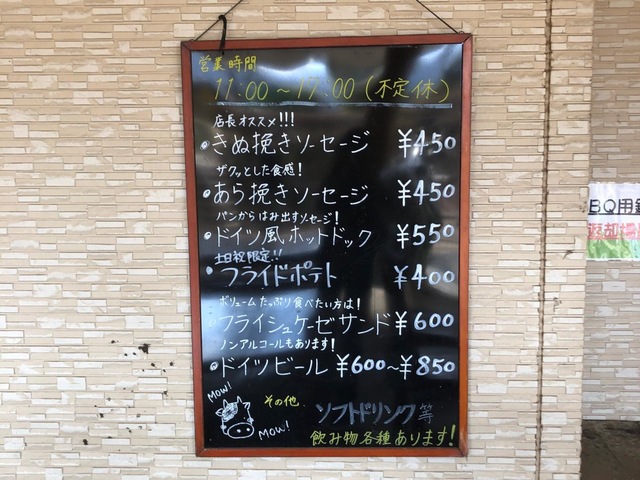 営業時間
11:00～17:00(不定休)
店長オススメ!!!
・きぬ挽きソーセージ ¥450
ザクッとした食感!
・あら挽きソーセージ ¥450
パンからはみ出すソーセージ!
・ドイツ風ホットドック ¥550
土日祝限定!!
・フライドポテト ¥400
ボリュームたっぷり食べたい方は!
・フライシュケーゼサンド ¥600
ノンアルコールもあります!
・ドイツビール ¥600～¥850
MOW!
MOW!
その他 ソフトドリンク等
飲み物各種あります!
BQ用